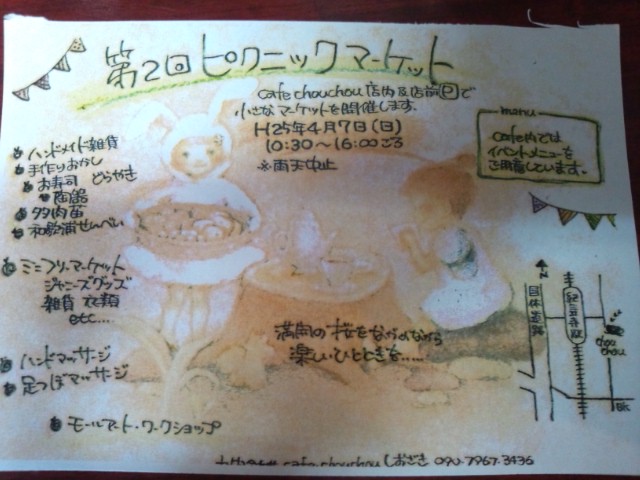 第2回ピクニックマーケット
cafe chouchou 店内&店前Ⓟで
小さなマーケットを開催します。
H25年4月7日(日)
10:30〜16:00ごろ
※雨天中止
menu
cafe内では
イベントメニューを
ご用意しています。
ハンドメイド雑貨
手作りおかし
お寿司 どらやき
陶器
多肉苗
和歌浦せんべい
ミニフリーマーケット
ジャニーズグッズ
雑貨 衣類
etc....
ハンドマッサージ
足つぼマッサージ
モールアート・ワークショップ
満開の桜をながめながら
楽しいひとときを......
N
国体道路
紀三井寺駅
chou
chou
cafe.chouchou しおざき 090.7967.3436